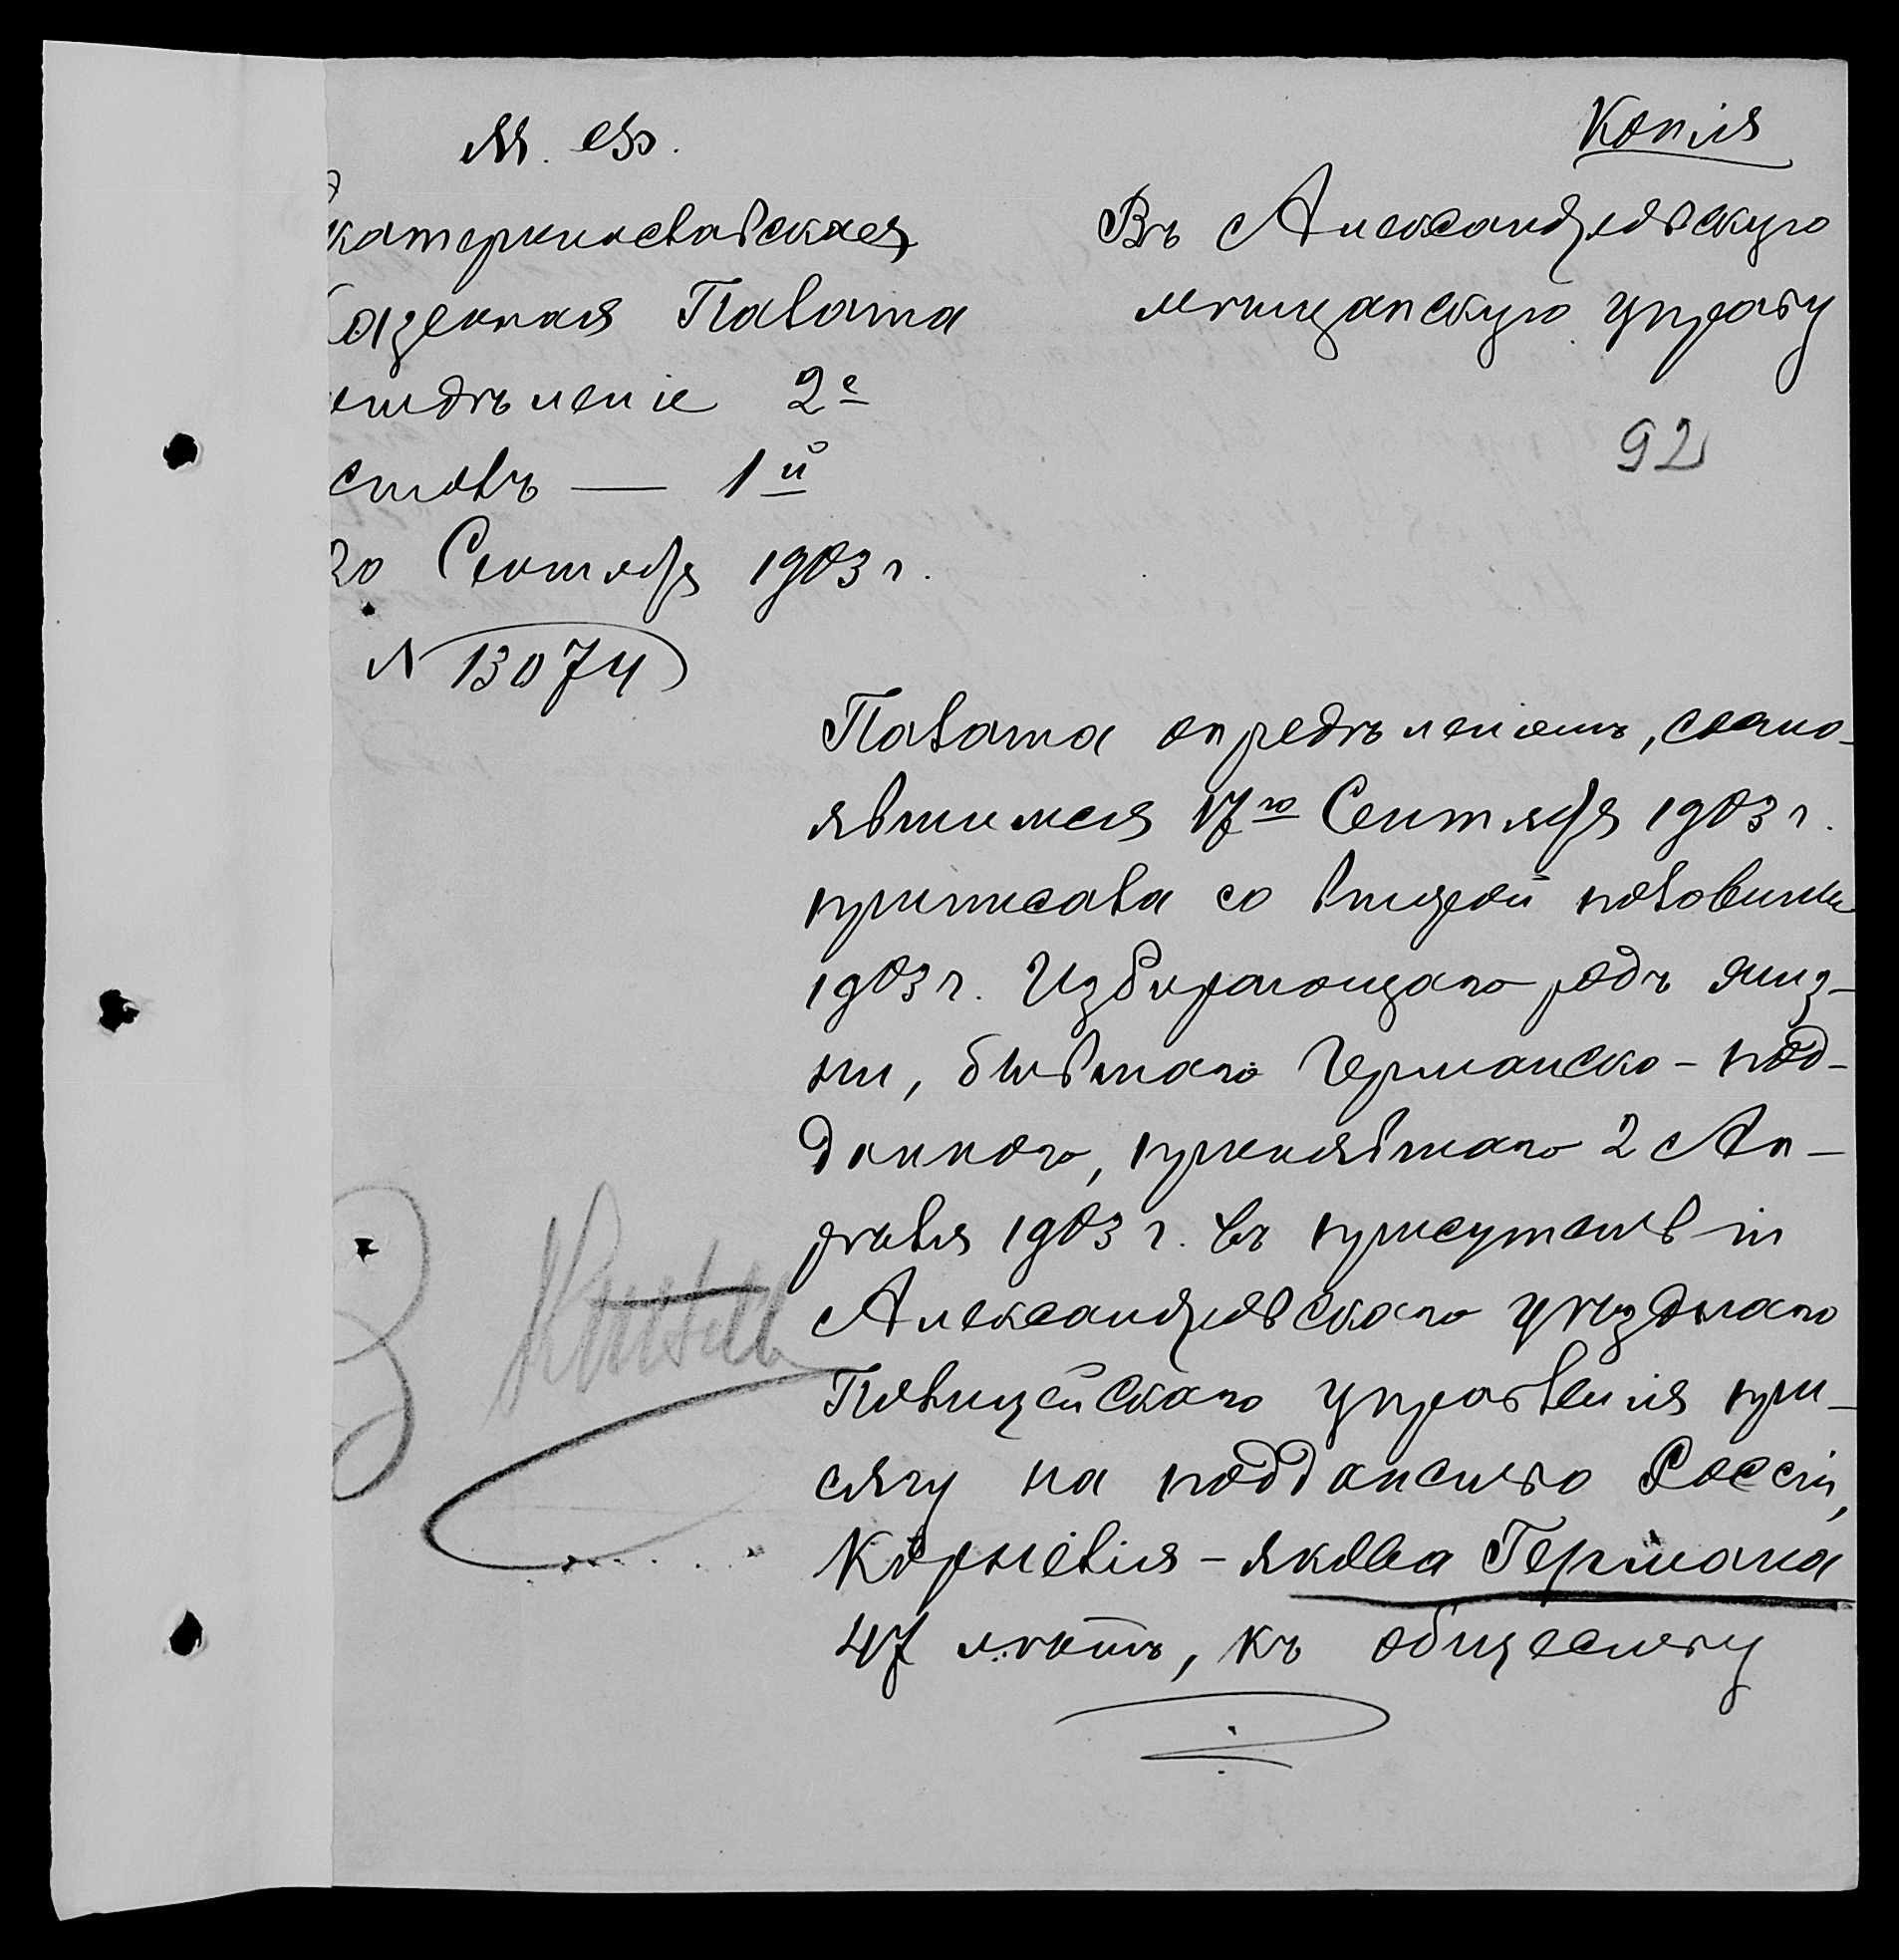 М. Ф.
Копія
катеринославская
азенная Палата
тдѣленіе 2е
столъ — 1й
20 Сентября 1903 г.
№ 13074
Въ Александровскую
мѣщанскую управу
92
Палата опредѣленіемъ, состо-
явшимся 17го Сентября 1903 г.
приписала со второй половины
1903 г. Избирающаго родъ жиз-
ни, бывшаго Германско-под-
даннаго, принявшаго 2 Ап-
рѣля 1903 г. въ присутствіи
Александровскаго уѣзднаго
Полицейскаго управленія при-
сягу на подданство Россіи,
Корнелія-Якова Германа
47 лѣтъ, къ обществу